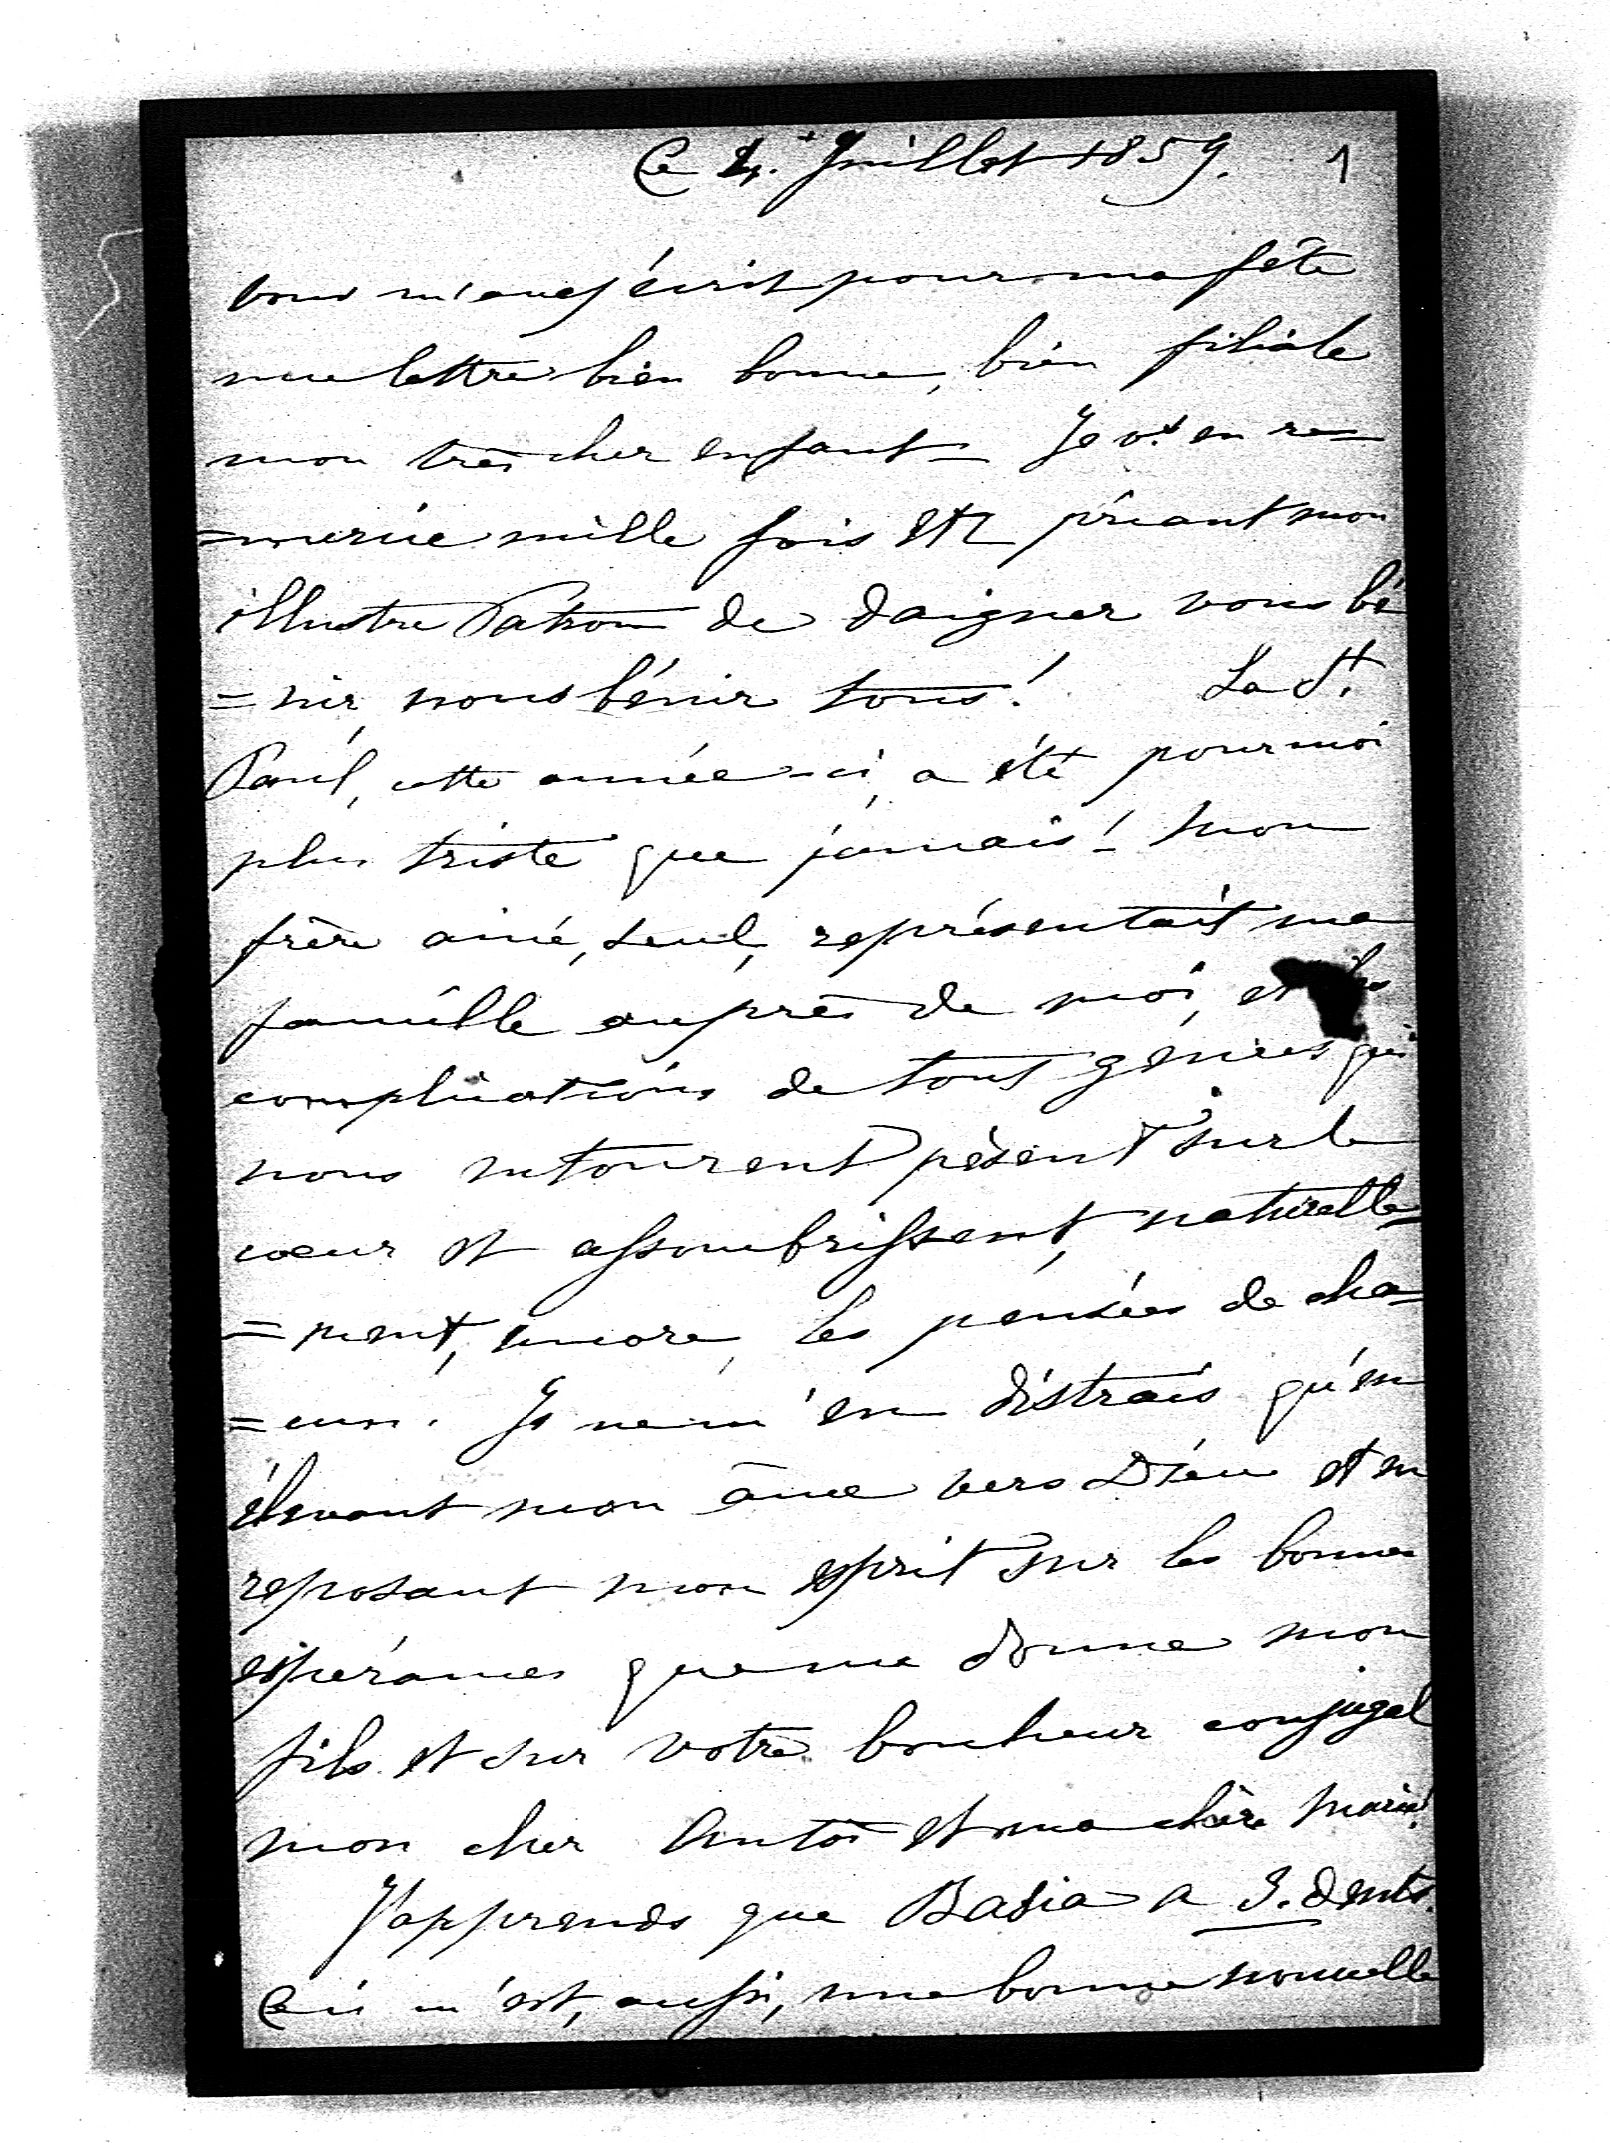 Ce 4. Juillet 1859. 1
vous m'avez écrit pour ma fête
une lettre bien bonne, bien filiale
mon très cher enfant – Je vs. en re=
=mercie mille fois et priant mon
illustre Patron de daigner vous bé
=nir, nous bénir tous! La St.
Paul, cette année-ci, a été pour moi
plus triste que jamais! Mon
frère ainé, seul, représentait ma
famille auprès de moi, et les
complications de tous genres qui
nous entourent pèsent sur le
coeur et assombrissent, naturelle=
=ment, encore, les pensées de cha=
=cun. Je ne m'en distrais qu'en
élevant mon âme vers Dieu et en
reposant mon esprit sur les bonnes
espérances que me donne mon
fils et sur votre bonheur conjugal
mon cher Antoi et ma chère Marie!
J'apprends que Basia a 3. dents.
Ceci m'est, aussi, une bonne nouvelle